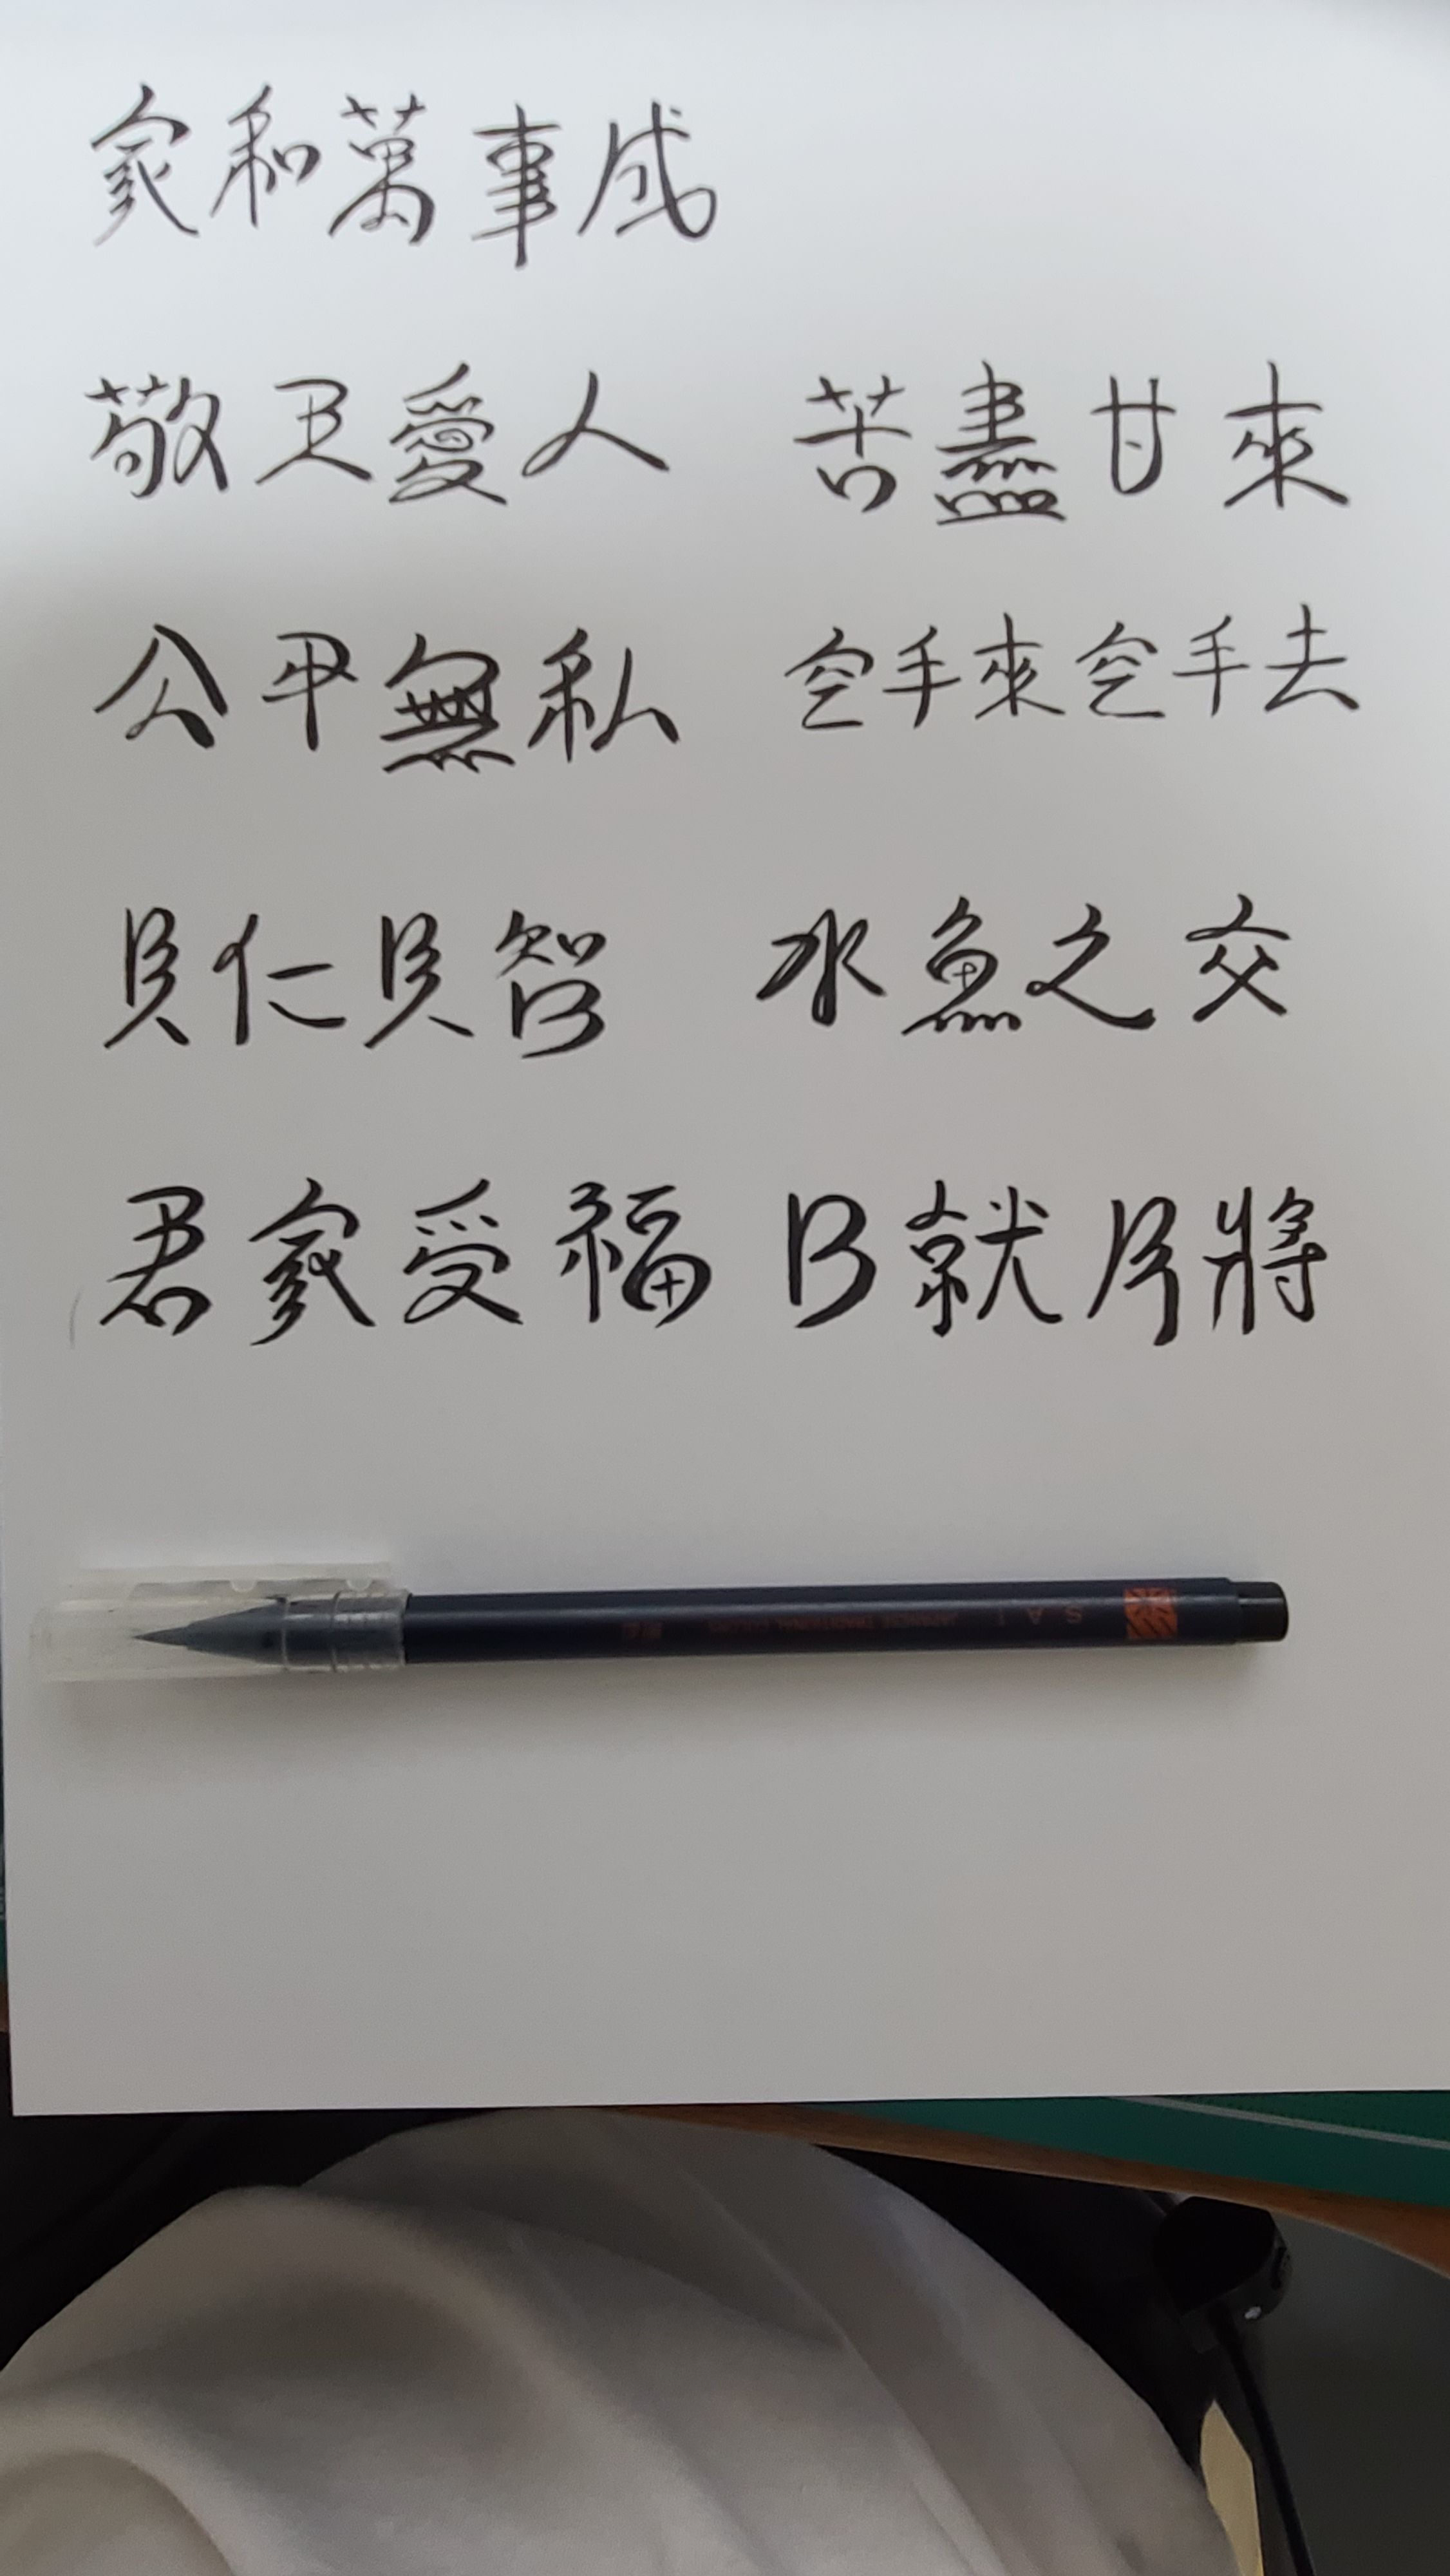 家和萬事成
敬天愛人 苦盡甘來
公平無私 空手來空手去
見仁見智 水魚之交
君家受福 日就月將
SAI
JAPANESE TRADITIONAL COLORS